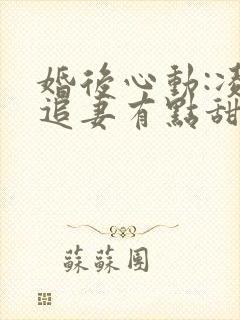 婚後心動:凌
追妻有點甜
蘇蘇團